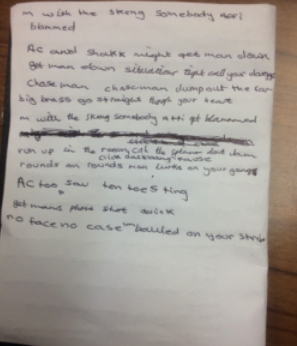 m with the skeng somebody
blammed
AC and shakk might get man down
get man down situation right call your dawgs
chase man chaseman dump out the car
big brass go straight through your heart
m with the skeng somebody get blammed
run up in the room, the spinner dont jam
rounds on rounds man lurks on your gang
AC too saw ten toes ting
get mans phone shot quick
no face no case balled on your strip